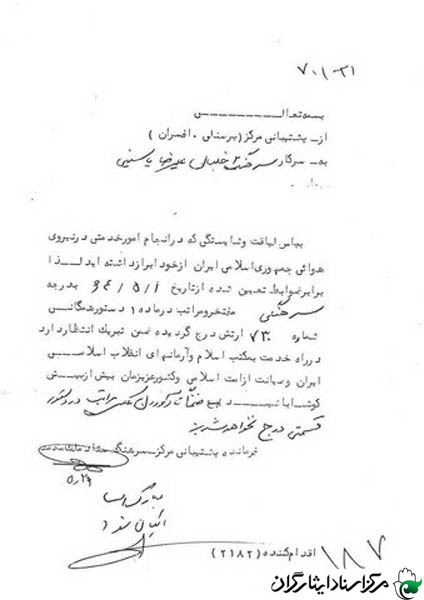 ۷۰/-۳۱
بسمه تعالـــــــــــی
از- پشتیبانی مرکز (پرسنلی ۰ افسران )
به- سرکار سرهنگ ۲ خلبان علیرضا یاسینی
بپاس لیاقت وشایستگی که در انجام امور خدمتی در نیروی
هوائی جمهوری اسلامی ایران از خود ابراز داشته اید لـــذا
برابر ضوابط تعیین شده از تاریخ ۶۴/۵/۱ بدرجه
سرهنگی مفتخر ومراتب در ماده ۱ دستور همگانی
شماره ۷۳ ارتش درج گردیده ضمن تبریک انتظار دارد
در راه خدمت بمکتب اسلام وآرمانهای انقلاب اسلامــــی
ایران وصیانت از امت اسلامی وکشور عزیزمان بیش از پیــش
کوشا باشیــــد ضمناً تا آوردن عکس مراتب در دستور
قسمتی درج نخواهد شد
فرمانده پشتیبانی مرکز- سرهنگ
۵/۲۹
بایگانی
اقدام کننده (۲۱۸۲)
۱۸۷
مرکز اسناد ایثارگران